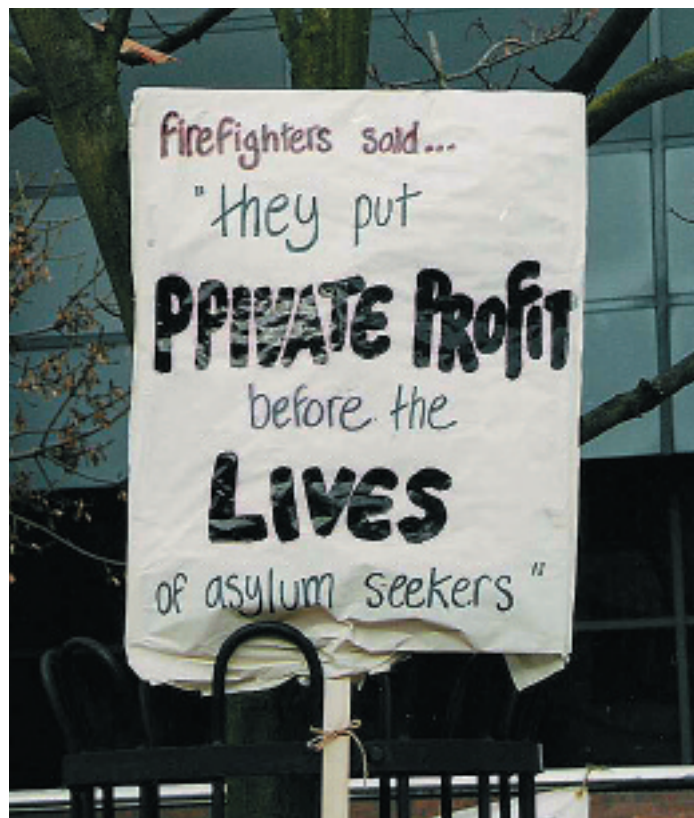 firefighters said...
"they put
PRIVATE PROFIT
before the
LIVES
of asylum seekers"